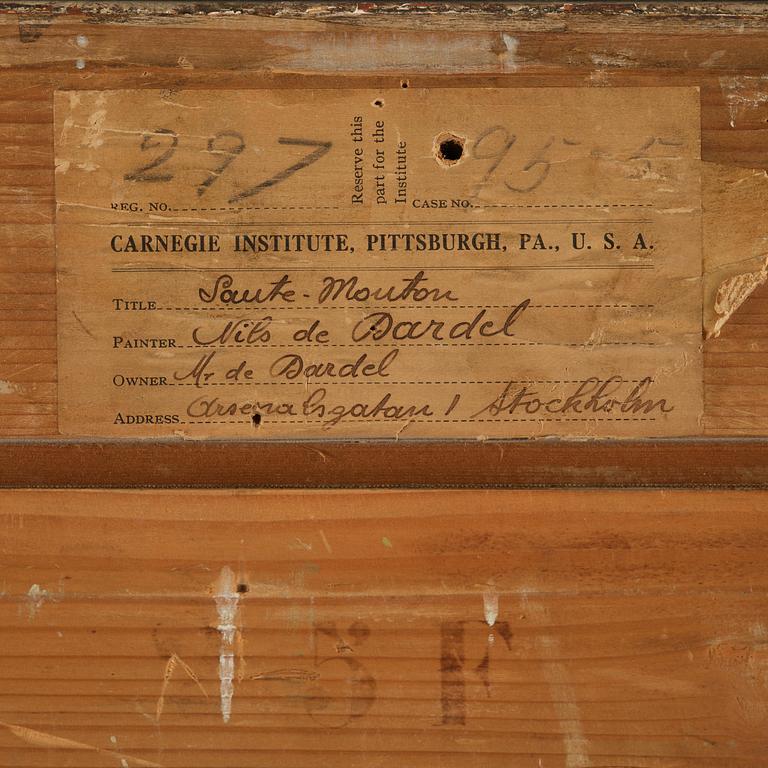 297
Reserve this
part for the
Institute
95-5
REG. NO.
CASE NO.
CARNEGIE INSTITUTE, PITTSBURGH, PA., U. S. A.
TITLE Saute-Mouton
PAINTER Nils de Dardel
OWNER Mr de Dardel
ADDRESS Arsenalsgatan 1 Stockholm
5 F